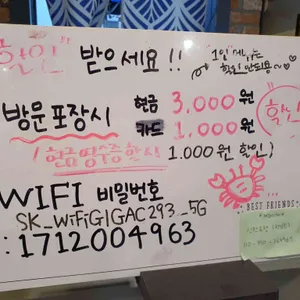 "할인" 받으세요!!
"1인" 메뉴는
할인 안되용~
방문포장시 현금 3.000원
카드 1.000원
(현금영수증 할시 1.000원 할인)
WIFI 비밀번호
SK_WiFiGIGAC293_5G
: 1712004963
BEST FRIENDS